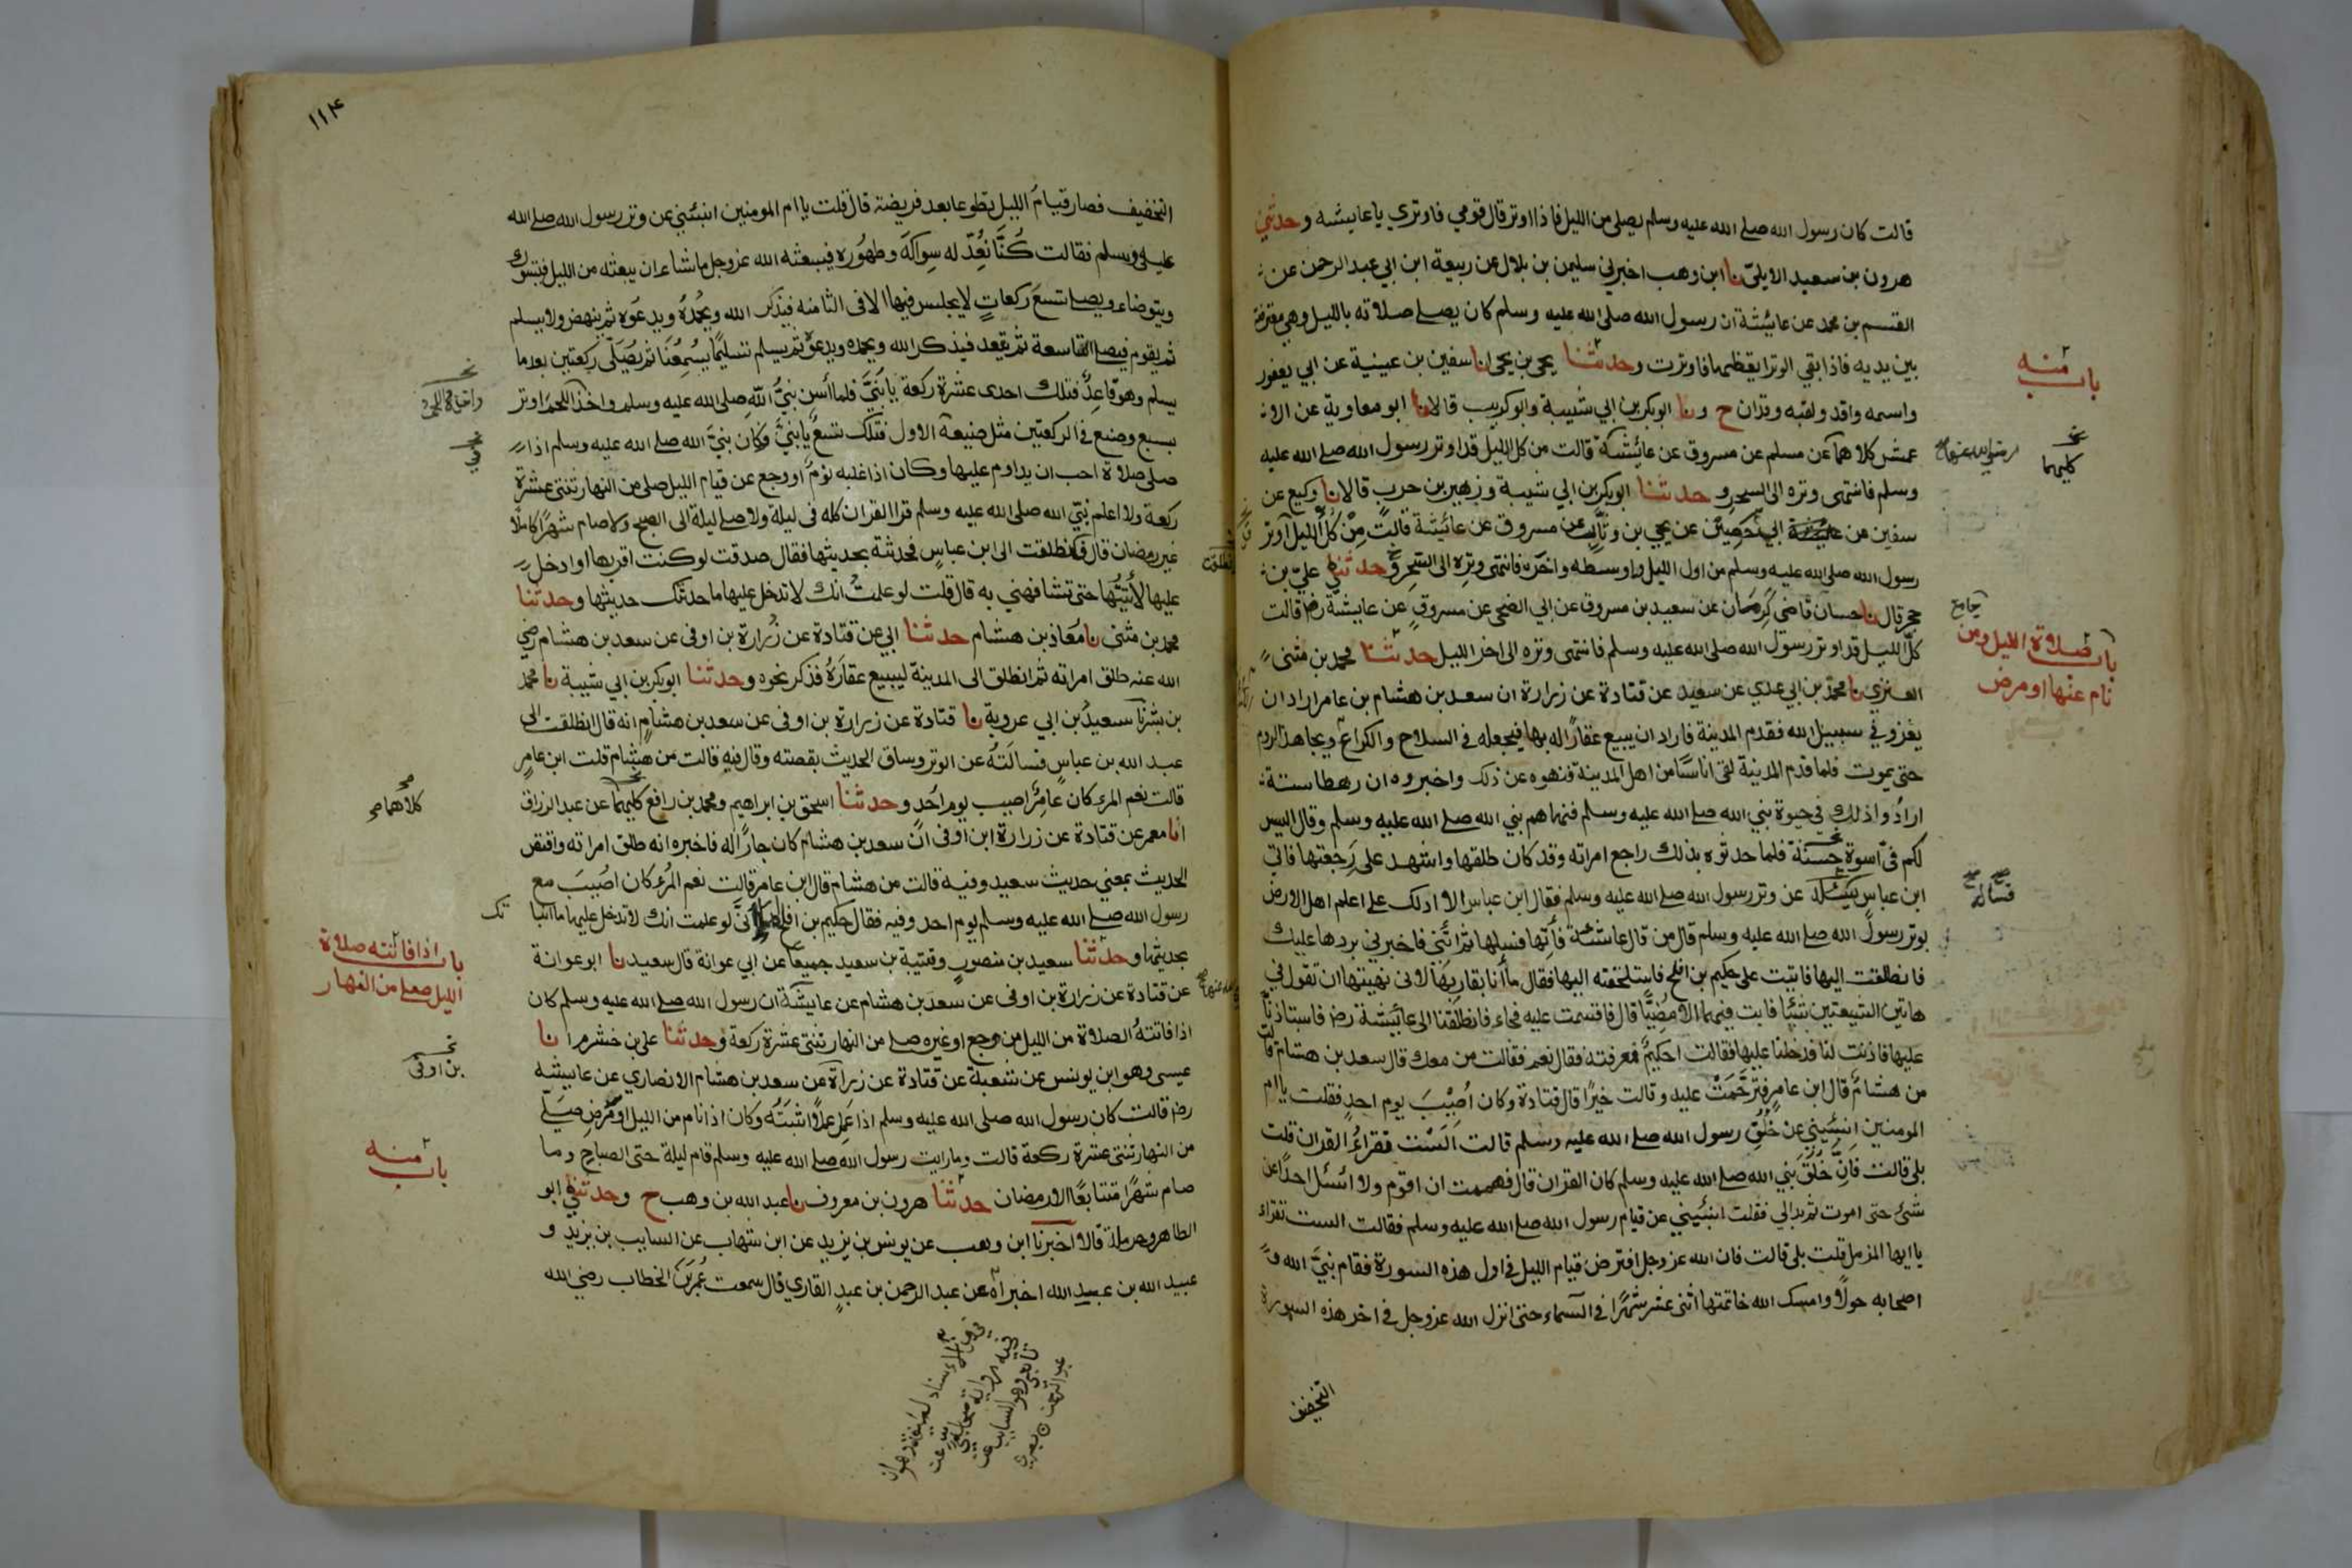 قالت كان رسول الله صلے الله عليه وسلم يصلى من الليل فاذا اوتر قال قومي فاوتري يا عايشه وحدثني
هرون بن سعيد الايليّ نا ابن وهب اخبرني سليمن بن بلال عن ربيعة ابن ابي عبد الرحمن عن
القسم بن محمد عن عائيشة ان رسول الله صلى الله عليه وسلم كان يصلے صلاته بالليل وهي معترضة
بين يديه فاذا بقي الوتر ايقظها فاوترت وحدثنا يحى بن يحى انا سفين بن عيينية عن ابي يعفور
باب منه
واسمه واقد ولقبه وقدان ح ونا ابوبكر بن ابي شيبة وابو كريب قالا نا ابو معاوية عن الا
عمش كلاهما عن مسلم عن مسروق عن عائشة قالت من كل الليل قد اوتر رسول الله صلے الله عليه
كليهما
وسلم فانتهى وتره الى السحر وحدثنا ابوبكر بن ابي شيبة وزهير بن حرب قالا نا وكيع عن
سفين عن ابي حصين عن يحيى بن وثاب عن مسروق عن عائشة قالت مِنْ كُلِّ الليل اوتر
رسول الله صلى الله عليه وسلم من اول الليل واوسطه واخره فانتهى وتره الى السَّحَرِ وحدثني عليّ بن
حجر قال نا حسان قاضى كِرمَان عن سعيد بن مسروق عن ابي الضحى عن مسروقٍ عن عايشة رضا قالت
كلّ الليل قد اوتر رسول الله صلى الله عليه وسلم فانتهى وتره الى اخر الليل حدثنا محمد بن مثنى
باب صلاة الليل ومن
نام عنها او مرض
العنزي نا محمد بن ابي عدي عن سعيد عن قتادة عن زرارة ان سعد بن هشام بن عامر اراد ان
يغزو في سبيل الله فقدم المدينة فاراد ان يبيع عقارًا له بها فيجعله فى السلاح والكراع ويجاهد الروم
حتى يموت فلما قدم المدينة لقى اناسًا من اهل المدينة فنهوه عن ذلك واخبروه ان رهطا ستة
ارادُوا ذلك في حيوة نبي الله صلے الله عليه وسلم فنهاهم نبي الله صلے الله عليه وسلم وقال اليس
لكم فيّ اسوة حسنة فلما حدثوه بذلك راجع امراته وقد كان طلقها واشهد على رَجعتها فاتى
ابن عباس عن وتر رسول الله صلے الله عليه وسلم فقال ابن عباس الا ادلك على اعلم اهل الارض
فساله
بوتر رسول الله صلے الله عليه وسلم قال من قال عائشة فأتِها فسلها ثم ائتني فاخبرني بردها عليك
فانطلقت اليها فاتيت على حكيم بن افلح فاستلحقته اليها فقال ما أنا بقاربِهَا لانى نهيتها ان تقول في
هاتين الشيعتين شيئا فابت فيهما الا مُضِيًّا قال فاقسمت عليه فجاء فانطلقنا الى عائيشة رضا فاستاذنا
عليها فاذنت لنا فدخلنا عليها فقالت احكيمٌ فعرفته فقال نعم فقالت من معك قال سعد بن هشام قالت
من هشامٌ قال ابن عامرٍ فترحَّمَتْ عليه وقالت خيرًا قال قتادة وكان اُصِيْبَ يوم احدٍ فقلت يا ام
المومنين انبئيني عن خُلُقِ رسول الله صلے الله عليه وسلم قالت الَسْت تقراءُ القران قلت
بلى قالت فانّ خُلُقَ نبي الله صلے الله عليه وسلم كان القران قال فهممت ان اقوم ولا اسئل احدًا عن
شئ حتى اموت ثم بدا لي فقلت انبئيني عن قيام رسول الله صلے الله عليه وسلم فقالت الست تقراء
يا ايها المزمل قلت بلى قالت فان الله عز وجل افترض قيام الليل فى اول هذه السورة فقام نبيَّ الله و
اصحابه حولًا وامسك الله خاتمتها اثنى عشر شهرًا فى السماء حتى انزل الله عز وجل فى اخر هذه السورة
التخفيف
١١٤
التخفيف فصار قيامُ الليل تطوعا بعد فريضة قال قلت يا ام المومنين انبئيني عن وتر رسول الله صلے الله
عليه وسلم فقالت كُنَّا نُعِدُّ له سِواكَهُ وطهُورَه فيبعثه الله عز وجل ما شاء ان يبعثه من الليل فيتسوك
ويتوضاء ويصلے تسعَ ركعاتٍ لا يجلس فيها الا فى الثامنه فيذكر الله ويحمُدُه ويدعَوْه ثم ينهض ولا يسلم
ثم يقوم فيصلے التاسعة ثم يقعد فيذكر الله ويحمده ويدعوه ثم يسلم تسليمًا يُسْمِعُنا ثم يُصَلّى ركعتين بعد ما
يسلم وهو قاعِدٌ فتلك احدى عشرة ركعة يا بُنَيَّ فلما أسن نبيُّ الله صلى الله عليه وسلم واخذ اللحم اوتر
بسبع وصنع فى الركعتين مثل صنيعه الاول فتلك تسعٌ يا بنيَّ وكان نبيُّ الله صلے الله عليه وسلم اذا
صلى صلاة احب ان يداوم عليها وكان اذا غلبه نومٌ او وجع عن قيام الليل صلى من النهار ثنتى عشرة
ركعة ولا اعلم نبيّ الله صلى الله عليه وسلم قرا القران كله فى ليلة ولا صلے ليلة الى الصبح ولا صام شهرًا كاملًا
غير رمضان قال فانطلقت الى ابن عباسٍ فحدثته بحديثها فقال صدقت لو كنت اقربها او ادخل
عليها لأتيتُها حتى تشافهني به قال قلت لو علمتُ انك لا تدخل عليها ما حدثتك حديثها وحدثنا
محمد بن مثنى نا مُعَاذ بن هشام حدثنا ابي عن قتادة عن زُرارة بن اوفى عن سعد بن هشام رضي
الله عنه طلق امراته ثم انطلق الى المدينة ليبيع عقارَهُ فذكر نحوه وحدثنا ابوبكر بن ابي شيبة نا محمد
بن بشر نا سعيدُ بن ابي عروبة نا قتادة عن زرارة بن اوفى عن سعد بن هشامٍ انه قال انطلقت الى
عبد الله بن عباسٍ فسالتُهُ عن الوتر وساق الحديث بقصته وقال فيه قالت من هشام قلت ابن عامرٍ
قالت نعم المرء كان عَامِرٌ اصيب يوم اُحَدٍ وحدثنا اسحق بن ابراهيم ومحمد بن رافعٍ كليهما عن عبد الرزاق
كلاهما
انا معمر عن قتادة عن زرارة ابن اوفى انّ سعد بن هشام كان جارًا له فاخبره انه طلق امراته واقتص
الحديث بمعنى حديث سعيد وفيه قالت من هشام قال ابن عامر قالت نعم المرُء كان اصُيبَ مع
رسول الله صلے الله عليه وسلم يوم احد وفيه فقال حكيم بن افلح لو علمت انك لا تدخل عليها ما انباتك
بحديثها وحدثنا سعيد بن منصورٍ وقتيبة بن سعيد جميعًا عن ابي عوانة قال سعيد نا ابو عوانة
باب اذا فاتته صلاة
الليل صلے من النهار
عن قتادة عن زرارة بن اوفى عن سعد بن هشام عن عايشة ان رسول الله صلے الله عليه وسلم كان
اذا فاتتهُ الصلاة من الليل من وجع او غيره صلے من النهار ثنتى عشرة ركعة وحدثنا على بن خشرم انا
عيسى وهو ابن يونس عن شعبة عن قتادة عن زرارة عن سعد بن هشام الانصاري عن عاييشه
بن اوفى
رضا قالت كان رسول الله صلى الله عليه وسلم اذا عَمِل عملًا اثبَتَهُ وكان اذا نام من الليل او مَرِض صَلّے
من النهار ثنتى عشرة ركعة قالت وما رايت رسول الله صلے الله عليه وسلم قام ليلة حتى الصباح وما
باب منه
صام شهرًا متتابعًا الا رمضان حدثنا هرون بن معروف نا عبد الله بن وهب ح وحدثني ابو
الطاهر وحرملة قالا اخبرنا ابن وهب عن يونس بن يزيد عن ابن شهاب عن السايب بن يزيد و
عبيد الله بن عبيد الله اخبراه عن عبد الرحمن بن عبدٍ القاري قال سمعت عُمر بن الخطاب رضي الله